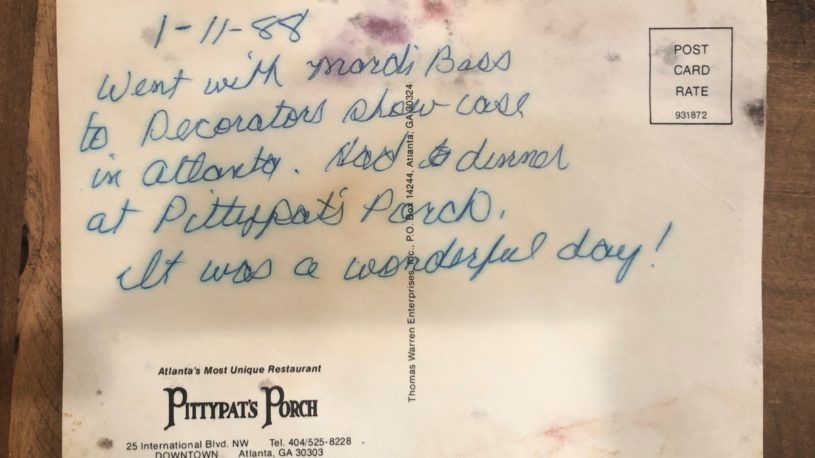 1-11-88
Went with Mardi Bass
to Decorators show case
in Atlanta. Had dinner
at Pittypat's Porch.
It was a wonderful day!
POST
CARD
RATE
931872
Thomas Warren Enterprises, Inc., P.O. Box 14244, Atlanta, GA 30324
Atlanta's Most Unique Restaurant
PITTYPAT'S PORCH
25 International Blvd. NW Tel. 404/525-8228
DOWNTOWN Atlanta, GA 30303